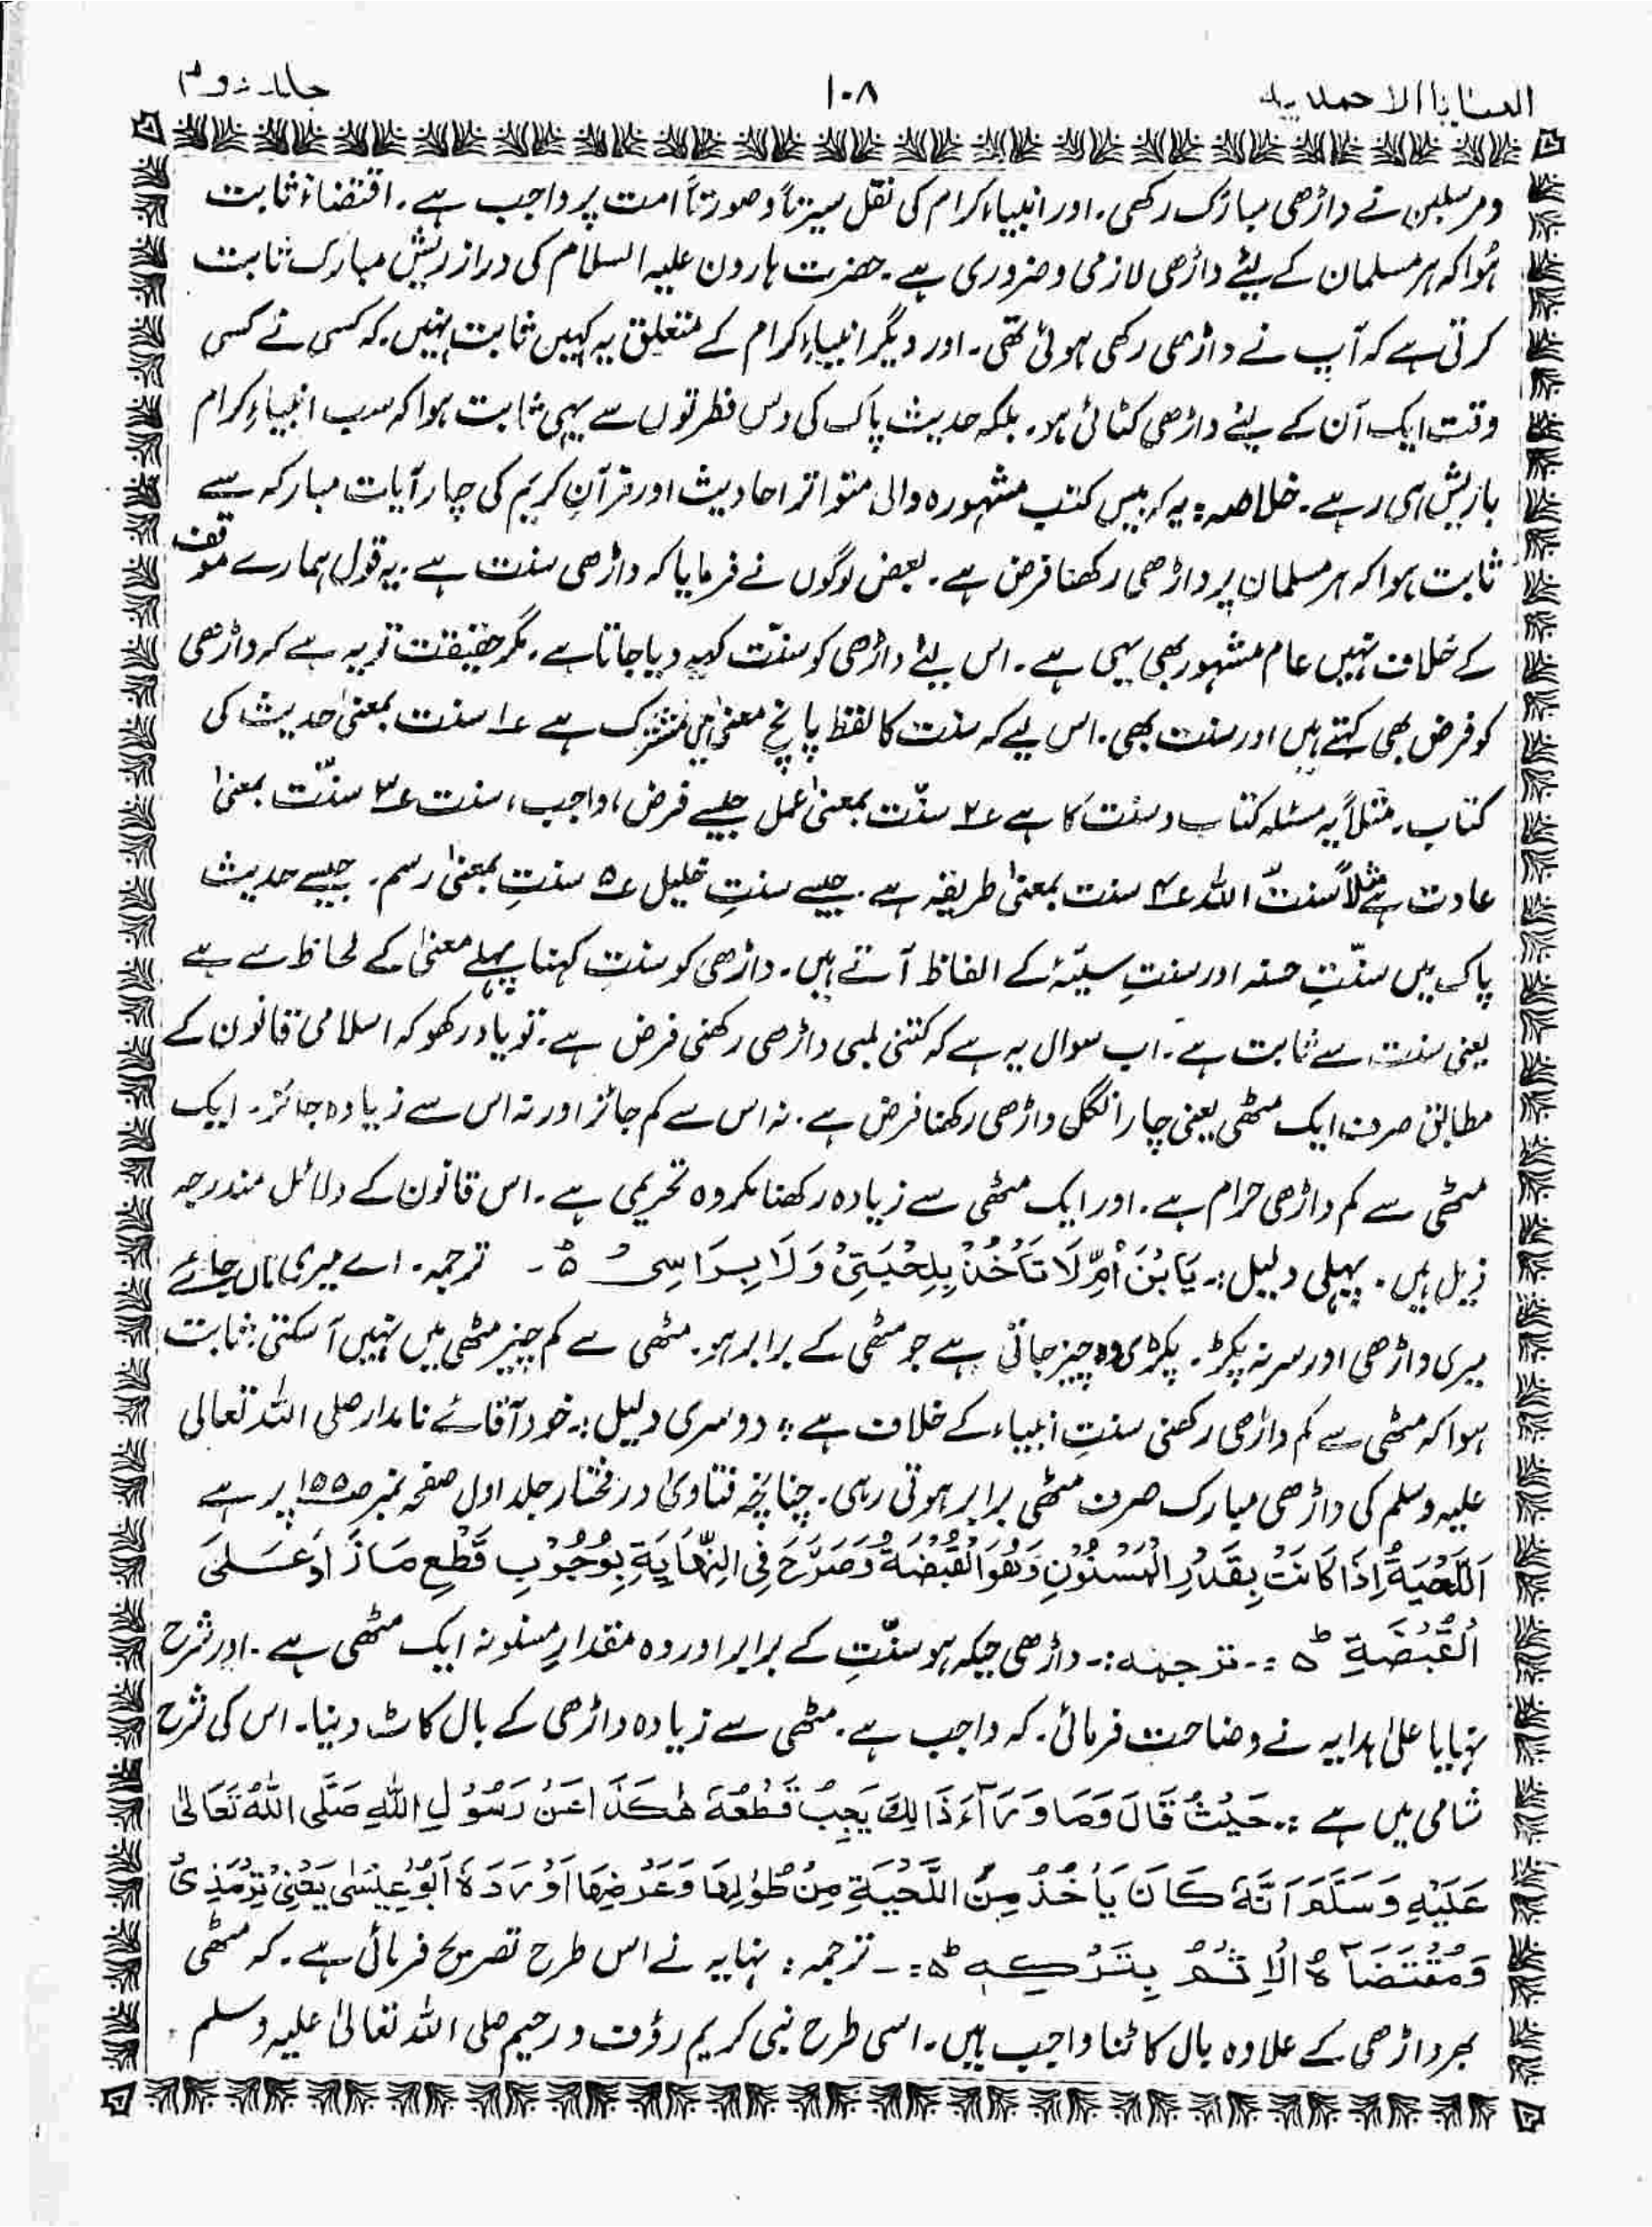 العطايا الاحمديه ۱۰۸ جلد دوم
ومرسلین نے داڑھی مبارک رکھی۔ اور انبیاء کرام کی نقل سیرتاً و صورتاً امت پر واجب ہے۔ اقتضاءً ثابت
ہُوا کہ ہر مسلمان کے لیئے داڑھی لازمی و ضروری ہے۔ حضرت ہارون علیہ السلام کی دراز ریش مبارک ثابت
کرتی ہے کہ آپ نے داڑھی رکھی ہوئی تھی۔ اور دیگر انبیاءِ کرام کے متعلق یہ کہیں ثابت نہیں۔ کہ کسی نے کسی
وقت ایک آن کے لیئے داڑھی کٹائی ہو۔ بلکہ حدیث پاک کی دس فطرتوں سے یہی ثابت ہوا کہ سب انبیاءِ کرام
باریش ہی رہے۔ خلاصہ: یہ کہ بیس کتبِ مشہورہ والی متواتر احادیث اور قرآنِ کریم کی چار آیات مبارکہ سے
ثابت ہوا کہ ہر مسلمان پر داڑھی رکھنا فرض ہے۔ بعض لوگوں نے فرمایا کہ داڑھی سنت ہے۔ یہ قول ہمارے موقف
کے خلاف نہیں عام مشہور بھی یہی ہے۔ اس لیئے داڑھی کو سنّت کہہ دیا جاتا ہے۔ مگر حقیقت تو یہ ہے کہ داڑھی
کو فرض بھی کہتے ہیں اور سنت بھی۔ اس لیے کہ سنت کا لفظ پانچ معنیٰ میں مشترک ہے ۱؎ سنت بمعنیٰ حدیث کی
کتاب۔ مثلاً یہ مسئلہ کتاب و سنت کا ہے ۲؎ سنّت بمعنیٰ عمل جیسے فرض، واجب، سنت ۳؎ سنّت بمعنیٰ
عادت ہے مثلاً سنتُ اللہ ۴؎ سنت بمعنیٰ طریقہ ہے۔ جیسے سنتِ خلیل ۵؎ سنتِ بمعنیٰ رسم۔ جیسے حدیث
پاک میں سنّتِ حسنہ اور سنتِ سیئہ کے الفاظ آتے ہیں۔ داڑھی کو سنت کہنا پہلے معنیٰ کے لحاظ سے ہے
یعنی سنت سے ثابت ہے۔ اب سوال یہ ہے کہ کتنی لمبی داڑھی رکھنی فرض ہے۔ تو یاد رکھو کہ اسلامی قانون کے
مطابق صرف ایک مٹھی یعنی چار انگل داڑھی رکھنا فرض ہے۔ نہ اس سے کم جائز اور نہ اس سے زیادہ جائز۔ ایک
مٹھی سے کم داڑھی حرام ہے۔ اور ایک مٹھی سے زیادہ رکھنا مکروہ تحریمی ہے۔ اس قانون کے دلائل مندرجہ
ذیل ہیں۔ پہلی دلیل:۔ يَابْنَ اُمِّ لَا تَأْخُذْ بِلِحْيَتِىْ وَلَا بِرَاسِىْ ط ۵۔ ترجمہ۔ اے میری ماں جائے
میری داڑھی اور سر نہ پکڑ۔ پکڑی وہ چیز جاتی ہے جو مٹھی کے برابر ہو۔ مٹھی سے کم چیز مٹھی میں نہیں آ سکتی: ثابت
ہوا کہ مٹھی سے کم داڑھی رکھنی سنتِ انبیاء کے خلاف ہے: دوسری دلیل:۔ خود آقائے نامدار صلی اللہ تعالی
علیہ وسلم کی داڑھی مبارک صرف مٹھی برابر ہوتی رہی۔ چنانچہ فتاویٰ درمختار جلد اول صفحہ نمبر ص۱۵۵ پر ہے
اَللِّحْيَةُ اِذَا كَانَتْ بِقَدْرِ الْمَسْنُوْنِ وَهُوَ الْقُبْضَةُ وَصَرَّحَ فِى النِّهَايَةِ بِوُجُوْبِ قَطْعِ مَا زَادَ عَلَى
الْقُبْضَةِ ط ۵ :۔ ترجمہ:۔ داڑھی جبکہ ہو سنّتِ کے برابر اور وہ مقدارِ مسنونہ ایک مٹھی ہے۔ اور شرح
نہایا علیٰ ہدایہ نے وضاحت فرمائی۔ کہ واجب ہے۔ مٹھی سے زیادہ داڑھی کے بال کاٹ دینا۔ اس کی شرح
شامی میں ہے :۔ حَيْثُ قَالَ وَمَا وَرَآءَ ذَالِكَ يَجِبُ قَطْعُهٗ هٰكَذَا عَنْ رَسُوْلِ اللّٰهِ صَلَّى اللّٰهُ تَعَالىٰ
عَلَيْهِ وَسَلَّمَ اَنَّهٗ كَانَ يَأْخُذُ مِنَ اللِّحْيَةِ مِنْ طُوْلِهَا وَعَرْضِهَا اَوْرَدَهٗ اَبُوْ عِيْسٰى يَعْنِىْ تِرْمَذِىْ
وَمُقْتَضَاهُ الْاِثْمُ بِتَرْكِهٖ ط ۵ :۔ ترجمہ: نہایہ نے اس طرح تصریح فرمائی ہے۔ کہ مٹھی
بھر داڑھی کے علاوہ بال کاٹنا واجب ہیں۔ اسی طرح نبی کریم رؤف و رحیم صلی اللہ تعالیٰ علیہ وسلم